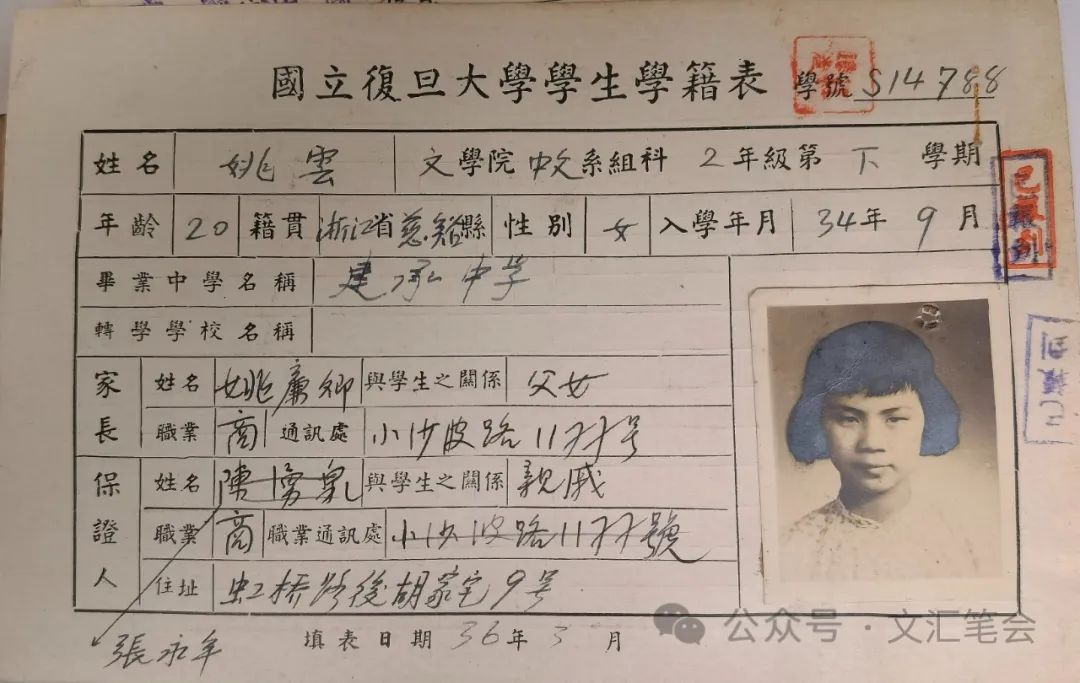 國立復旦大學學生學籍表 學號 S14788
姓名 姚雲 文學院 中文系組科 2年級第下學期
年齡 20 籍貫 浙江省慈谿縣 性別 女 入學年月 34年9月
畢業中學名稱 建承中学
轉學學校名稱
家長 姓名 姚廉卿 與學生之關係 父女
職業 商 通訊處 小沙渡路1177号
保證人 姓名 陳 與學生之關係 親戚
職業 商 職業通訊處 小沙渡路1177號
住址 虹桥路後胡家宅9号
張永年
填表日期 36年3月
已報到
公众号·文汇笔会